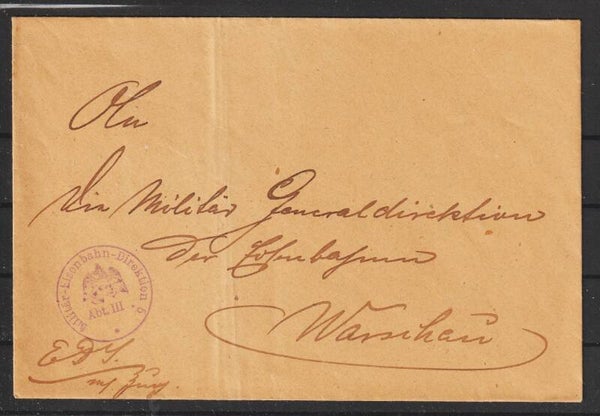 An
die Militär Generaldirektion
der Eisenbahnen
Warschau
Militär-Eisenbahn-Direktion 5
Abt. III
E.D.S.